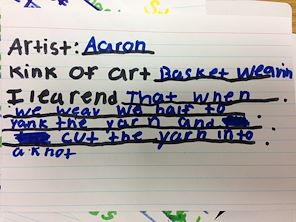 Artist: Aaron
Kink of art Basket Weavin
I learend That when
we weav we half to
yank the yarn and
cut the yarn into
a knot